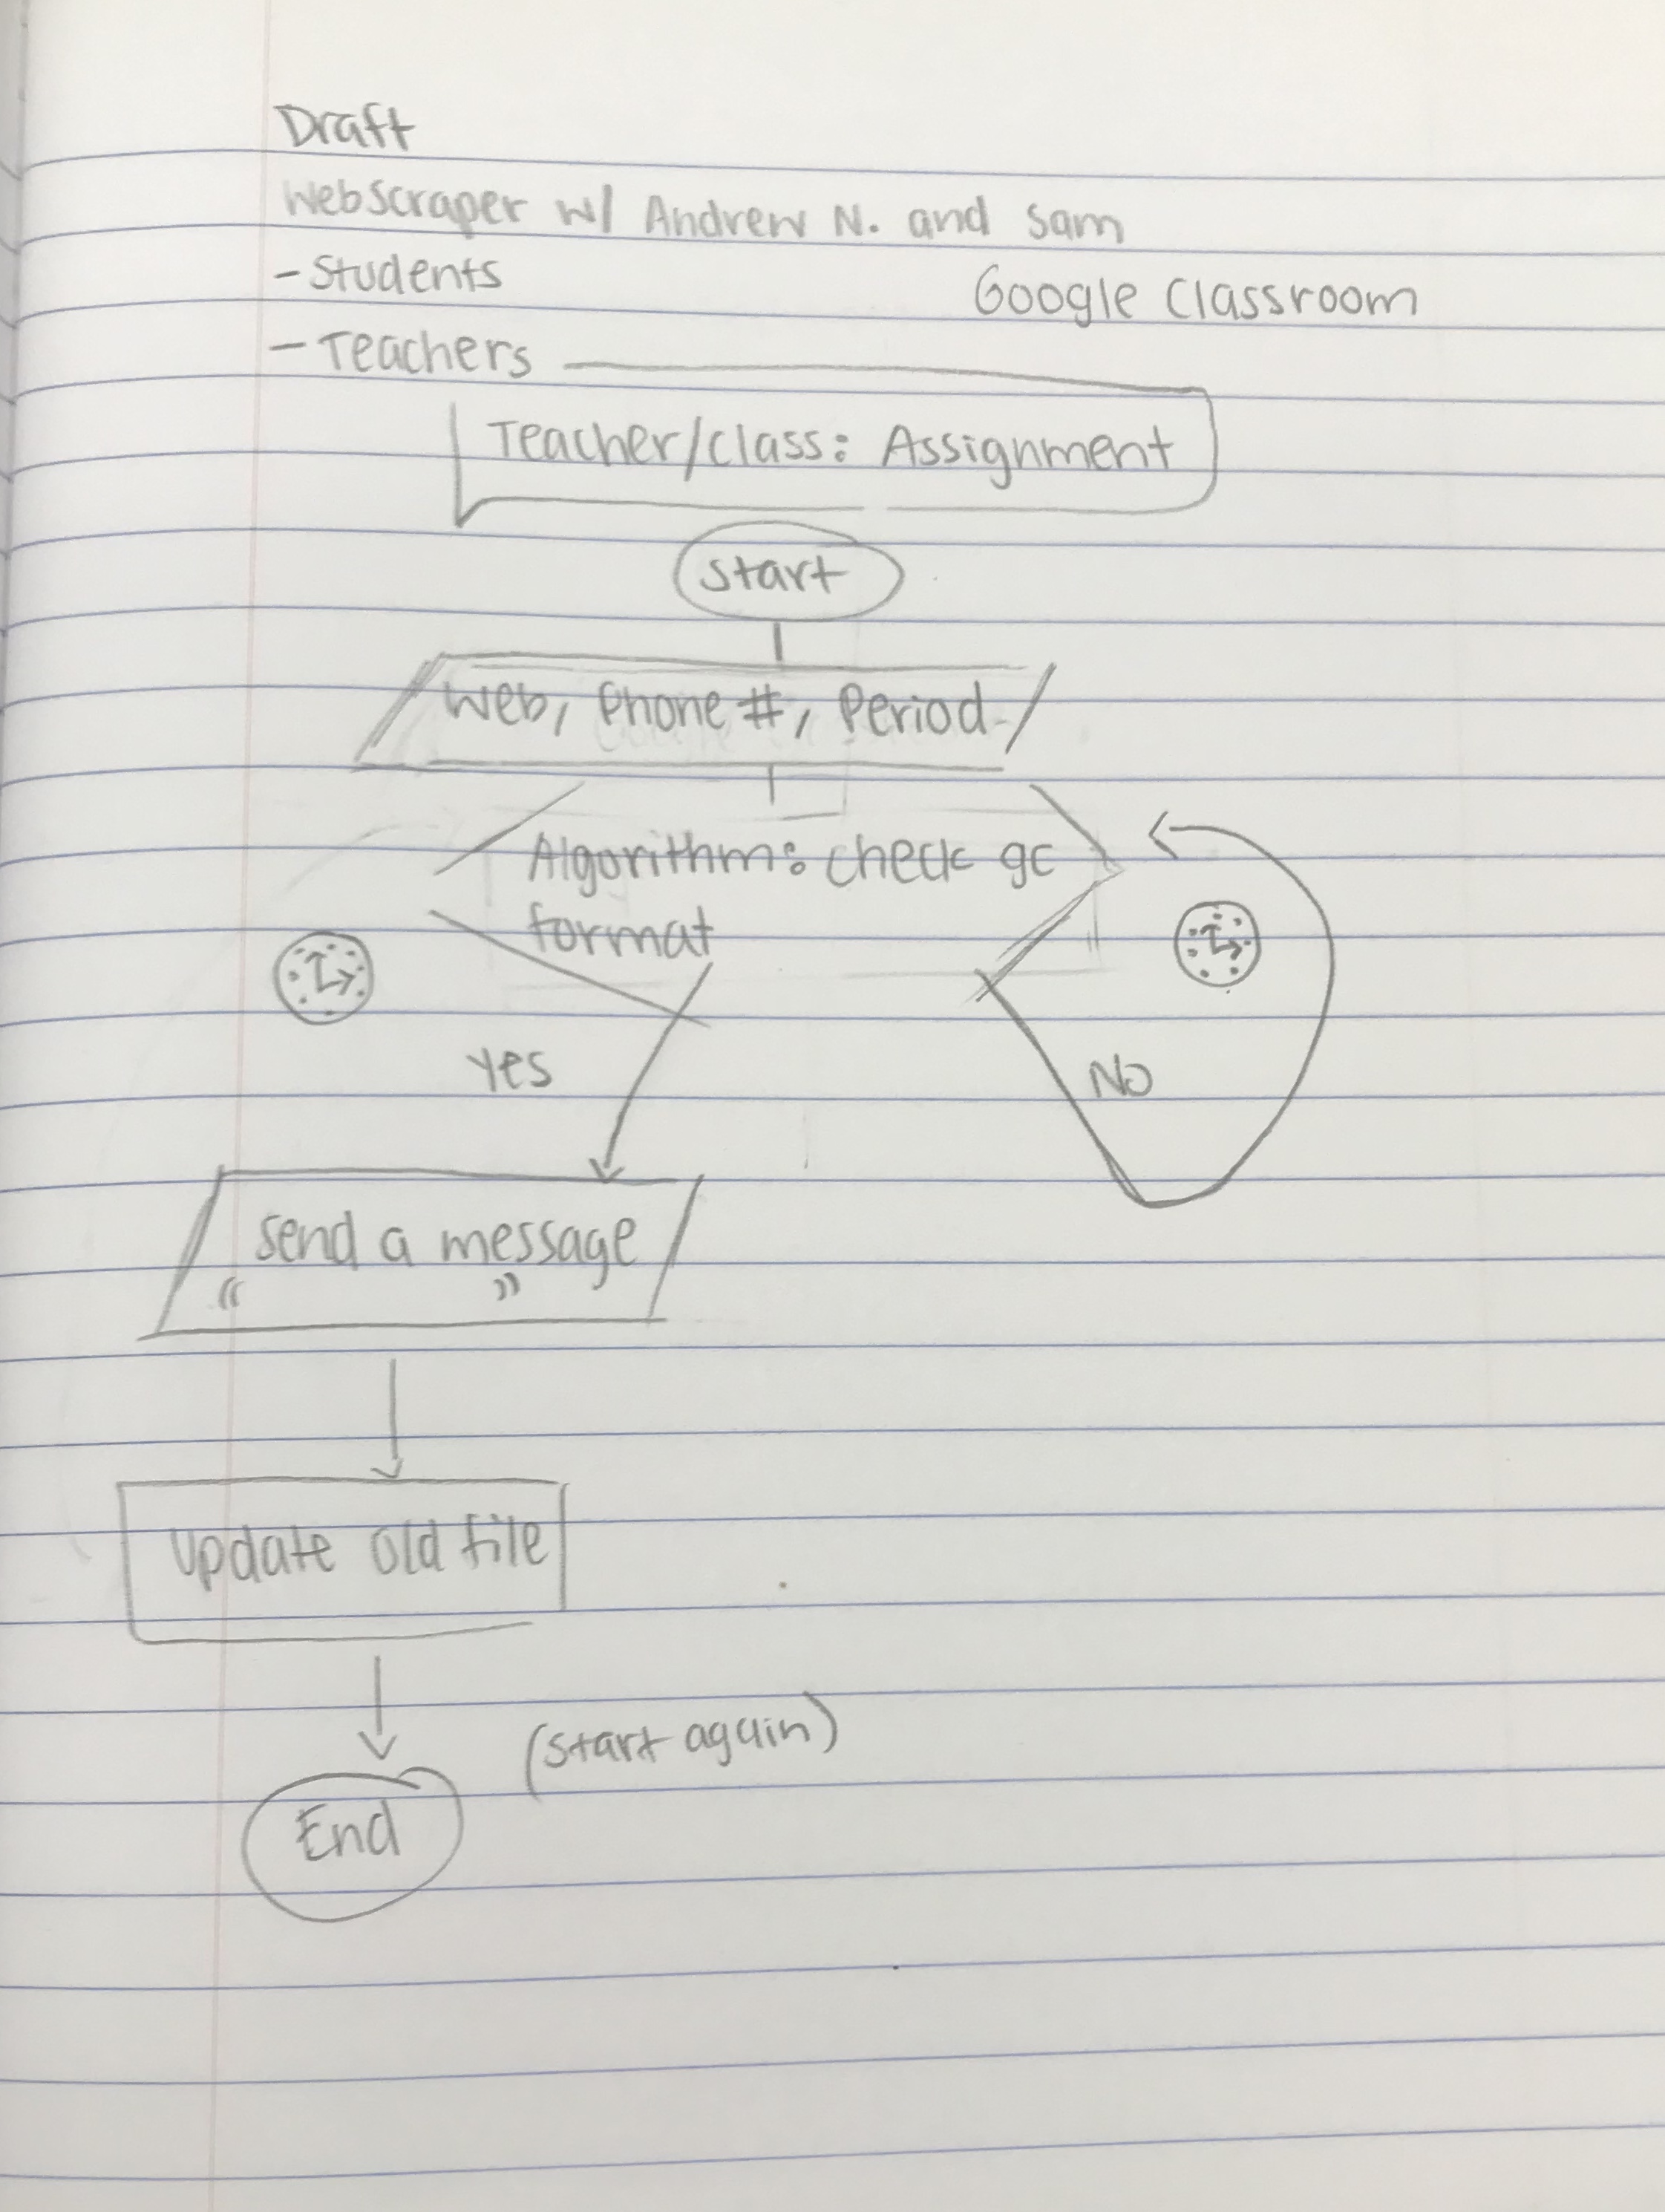 Draft
WebScraper w/ Andrew N. and Sam
- Students
Google Classroom
- Teachers
Teacher/class: Assignment
Start
Web, Phone #, Period
Algorithm: check gc
format
Yes
No
Send a message
“ ”
Update old file
(start again)
End